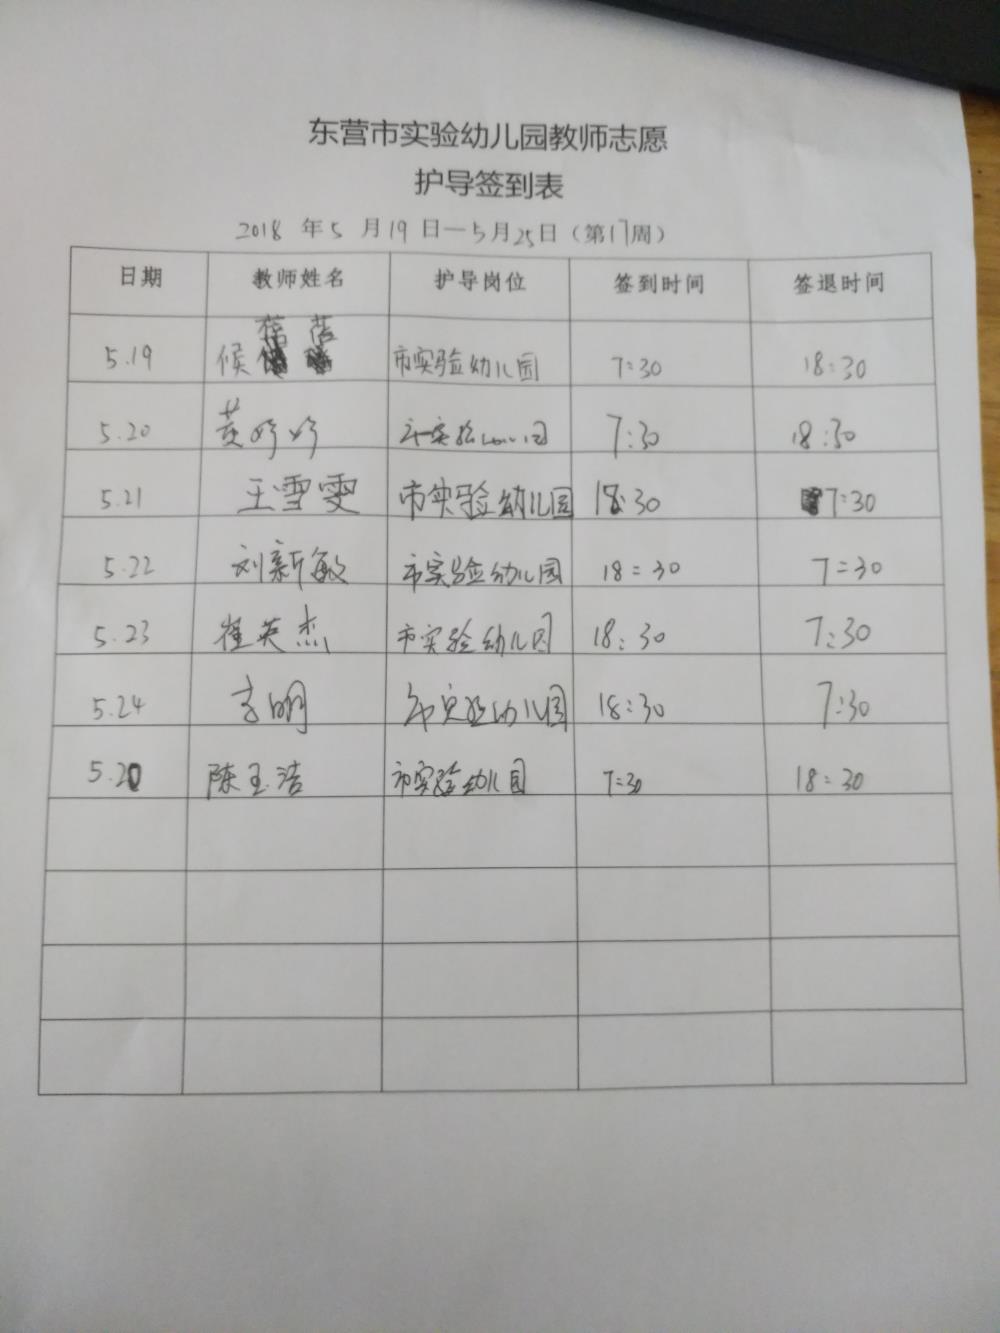 东营市实验幼儿园教师志愿
护导签到表
2018 年 5 月 19 日—5月25日（第17周）
日期 教师姓名 护导岗位 签到时间 签退时间
5.19 候蓓蓓 市实验幼儿园 7:30 18:30
5.20 黄婷婷 市实验幼儿园 7:30 18:30
5.21 王雪雯 市实验幼儿园 18:30 7:30
5.22 刘新敏 市实验幼儿园 18:30 7:30
5.23 崔英杰 市实验幼儿园 18:30 7:30
5.24 李明 市实验幼儿园 18:30 7:30
5.20 陈玉洁 市实验幼儿园 7:30 18:30